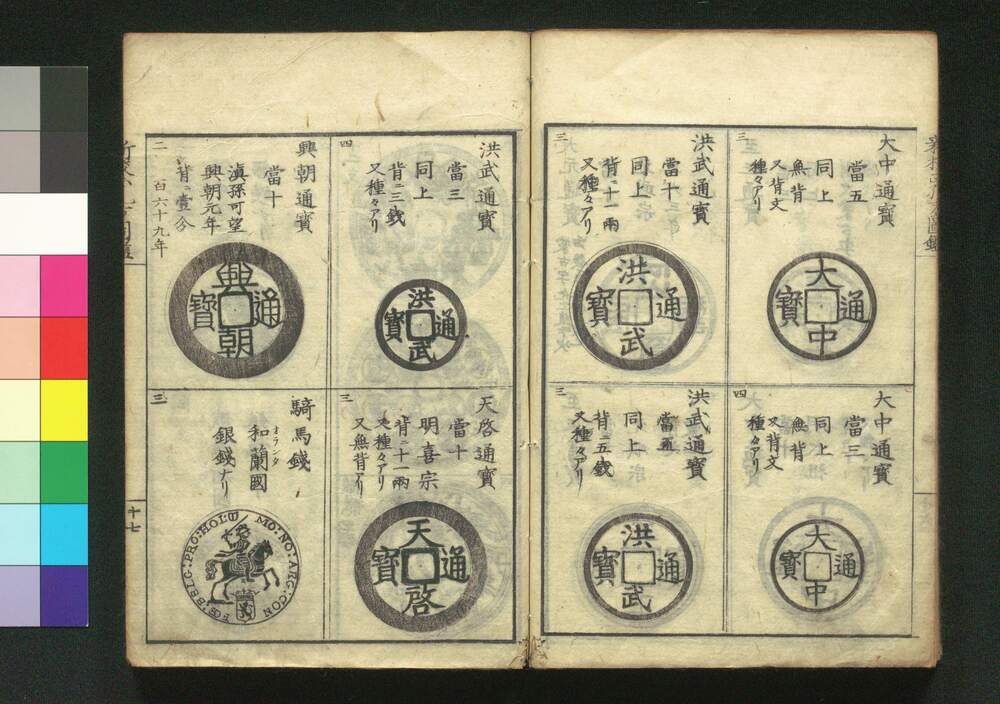 大中通寳
當五
同上
無背
又背文
種々アリ
三
大中通寳
大中通寳
當三
同上
無背
又背文
種々アリ
四
大中通寳
洪武通寳
當十
同上
背ニ十一兩
又種々アリ
三
洪武通寳
洪武通寳
當五
同上
背ニ五錢
又種々アリ
三
洪武通寳
洪武通寳
當三
同上
背ニ三錢
又種々アリ
四
洪武通寳
天啓通寳
當十
明熹宗
背ニ十一兩
又種々アリ
又無背アリ
三
天啓通寳
興朝通寳
當十
滇孫可望
興朝元年
背ニ壹分
百六十九年
二
興朝通寳
騎馬錢
和蘭國
オランタ
銀錢ナリ
三
MO:NO:ARG:CON
FOE:BELG:PRO:HOL:
十七